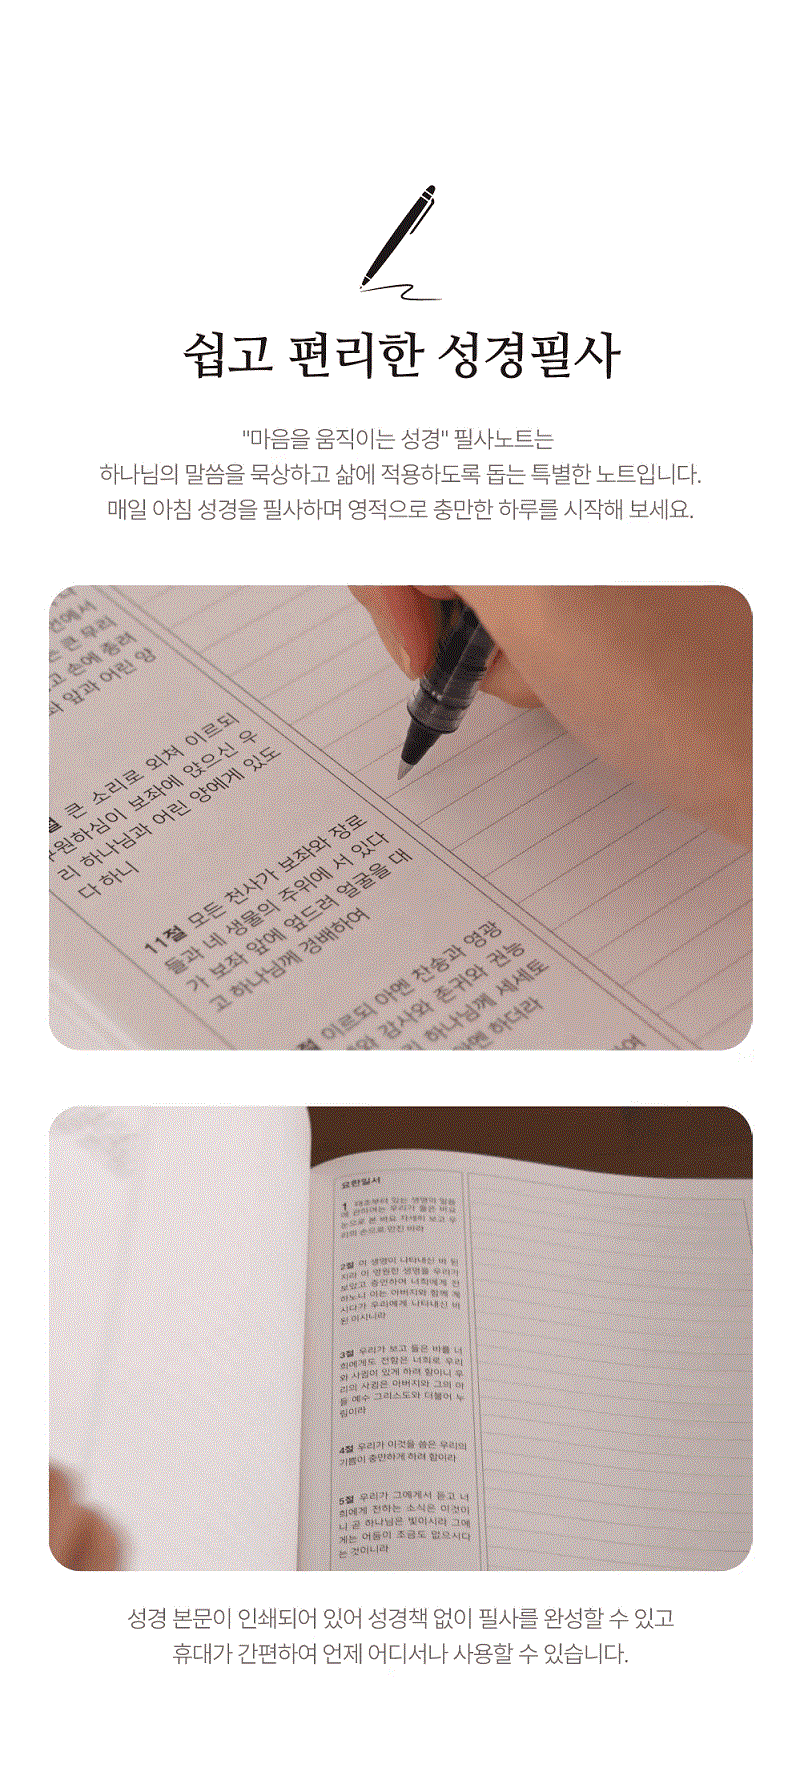 쉽고 편리한 성경필사
"마음을 움직이는 성경" 필사노트는
하나님의 말씀을 묵상하고 삶에 적용하도록 돕는 특별한 노트입니다.
매일 아침 성경을 필사하며 영적으로 충만한 하루를 시작해 보세요.
언에서
큰 무리
고 손에 종려
앞과 어린 양
큰 소리로 외쳐 이르되
원하심이 보좌에 앉으신 우
리 하나님과 어린 양에게 있도
다 하니
11절 모든 천사가 보좌와 장로
들과 네 생물의 주위에 서 있다
가 보좌 앞에 엎드려 얼굴을 대
고 하나님께 경배하여
절 이르되 아멘 찬송과 영광
와 감사와 존귀와 권능
하나님께 세세토
아멘 하더라
하여
요한일서
1 태초부터 있는 생명의 말씀
에 관하여는 우리가 들은 바요
눈으로 본 바요 자세히 보고 우
리의 손으로 만진 바라
2절 이 생명이 나타내신 바 된
지라 이 영원한 생명을 우리가
보았고 증언하여 너희에게 전
하노니 이는 아버지와 함께 계
시다가 우리에게 나타내신 바
된 이시니라
3절 우리가 보고 들은 바를 너
희에게도 전함은 너희로 우리
와 사귐이 있게 하려 함이니 우
리의 사귐은 아버지와 그의 아
들 예수 그리스도와 더불어 누
림이라
4절 우리가 이것을 씀은 우리의
기쁨이 충만하게 하려 함이라
5절 우리가 그에게서 듣고 너
희에게 전하는 소식은 이것이
니 곧 하나님은 빛이시라 그에
게는 어둠이 조금도 없으시다
는 것이니라
성경 본문이 인쇄되어 있어 성경책 없이 필사를 완성할 수 있고
휴대가 간편하여 언제 어디서나 사용할 수 있습니다.